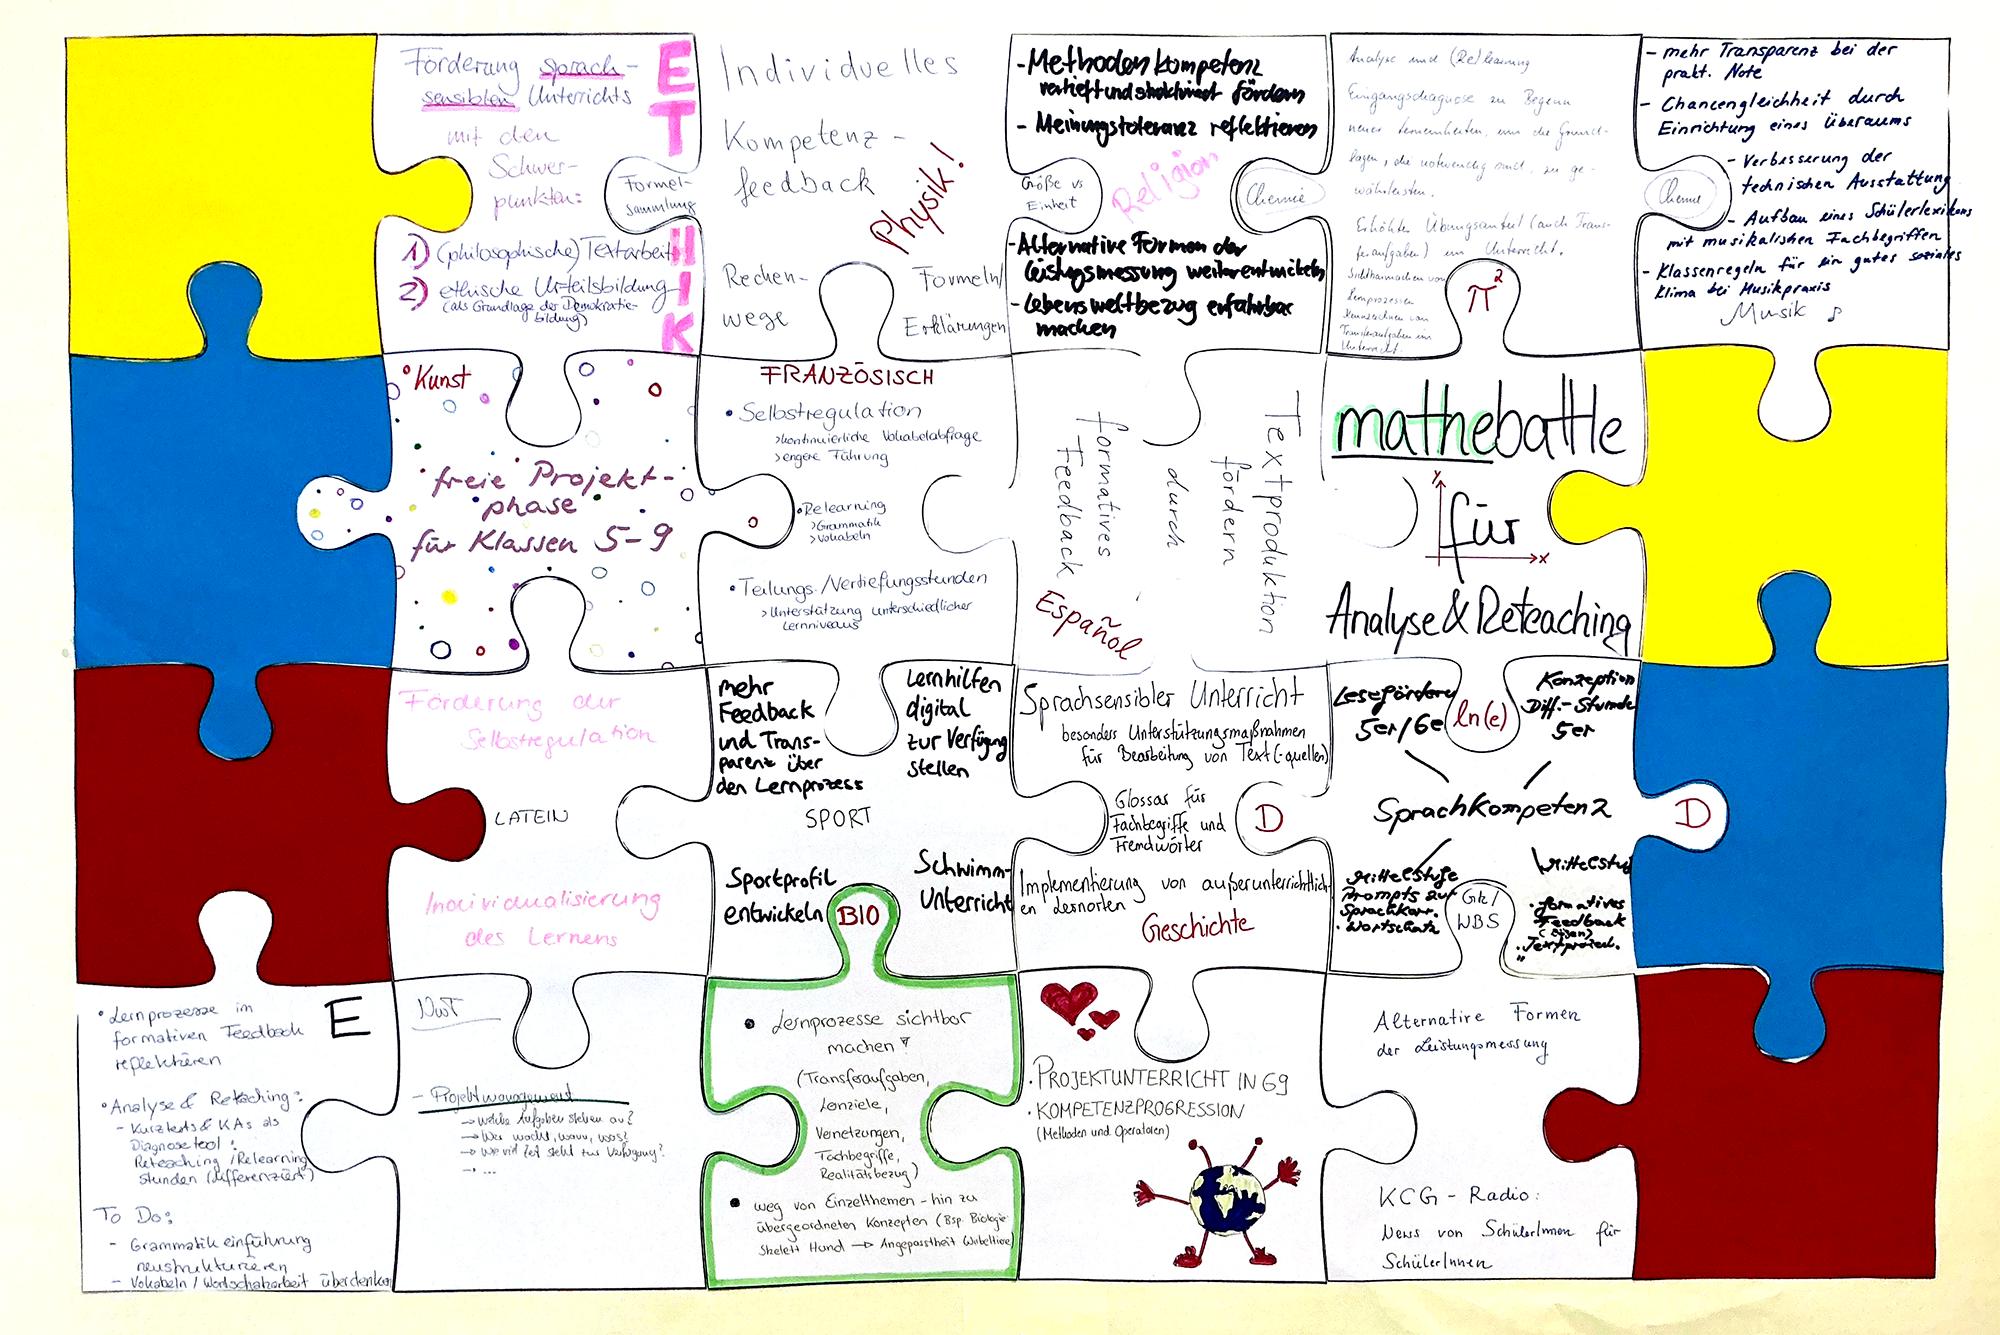 Förderung sprach-
sensiblen Unterrichts
mit den
Schwer-
punkten:
1) (philosophische) Textarbeit
2) ethische Urteilsbildung
(als Grundlage der Demokratie-
bildung)
ETHIK
Formel-
sammlung
Individuelles
Kompetenz-
feedback
Physik!
Rechen-
wege
Formeln/
Erklärungen
Größe vs
Einheit
- Methodenkompetenz
vertieft und strukturiert fördern
- Meinungstoleranz reflektieren
Religion
- Alternative Formen der
Leistungsmessung weiterentwickeln
- Lebensweltbezug erfahrbar
machen
Chemie
Analyse und (Re)learning
Eingangsdiagnose zu Beginn
neuer Lerneinheiten, um die Grund-
lagen, die notwendig sind, zu ge-
währleisten.
Erhöhter Übungsanteil (auch Trans-
feraufgaben) im Unterricht.
Sichtbarmachen von
Lernprozessen
Kennzeichnen von
Transferaufgaben im
Unterricht.
π²
Chemie
- mehr Transparenz bei der
prakt. Note
- Chancengleichheit durch
Einrichtung eines Überaums
- Verbesserung der
technischen Ausstattung
- Aufbau eines Schülerlexikons
mit musikalischen Fachbegriffen
- Klassenregeln für ein gutes soziales
Klima bei Musikpraxis
Musik ♪
Kunst
freie Projekt-
phase
für Klassen 5-9
FRANZÖSISCH
• Selbstregulation
> kontinuierliche Vokabelabfrage
> engere Führung
• Relearning
> Grammatik
> Vokabeln
• Teilungs-/Vertiefungsstunden
> Unterstützung unterschiedlicher
Lernniveaus
Textproduktion
fördern
durch
formatives
Feedback
Español
mathebattle
y
für
x
Analyse & Reteaching
Förderung der
Selbstregulation
LATEIN
Individualisierung
des Lernens
mehr
Feedback
und Trans-
parenz über
den Lernprozess
Lernhilfen
digital
zur Verfügung
stellen
SPORT
Sportprofil
entwickeln
Schwimm-
Unterricht
BIO
Sprachsensibler Unterricht
besonders Unterstützungsmaßnahmen
für Bearbeitung von Text(-quellen)
Glossar für
Fachbegriffe und
Fremdwörter
Implementierung von außerunterrichtlich-
en Lernorten
Geschichte
D
Leseförderung
5er/6er
ln(e)
Konzeption
Diff.-Stunde
5er
Sprachkompetenz
D
Mittelstufe
Prompts zur
Sprachkorr.
• Wortschatz
Gk/
WBS
Mittelstufe
• formatives
Feedback
E
• Lernprozesse im
formativen Feedback
reflektieren
• Analyse & Reteaching:
- Kurztests & KAs als
Diagnosetool:
Reteaching/Relearning
stunden (differenziert)
To Do:
- Grammatikeinführung
neustrukturieren
- Vokabeln/Wortschatzarbeit überdenken
NwT
- Projektmanagement
→ welche Aufgaben stehen an?
→ Wer macht, wann, was?
→ Wie viel Zeit steht zur Verfügung?
→ ...
• Lernprozesse sichtbar
machen!
(Transferaufgaben,
Lernziele,
Vernetzungen,
Fachbegriffe,
Realitätsbezug)
• weg von Einzelthemen - hin zu
übergeordneten Konzepten (Bsp. Biologie
Skelett Hund → Angepasstheit Wirbeltiere)
• PROJEKTUNTERRICHT IN G9
• KOMPETENZPROGRESSION
(Methoden und Operatoren)
Alternative Formen
der Leistungsmessung
KCG - Radio:
News von SchülerInnen für
SchülerInnen